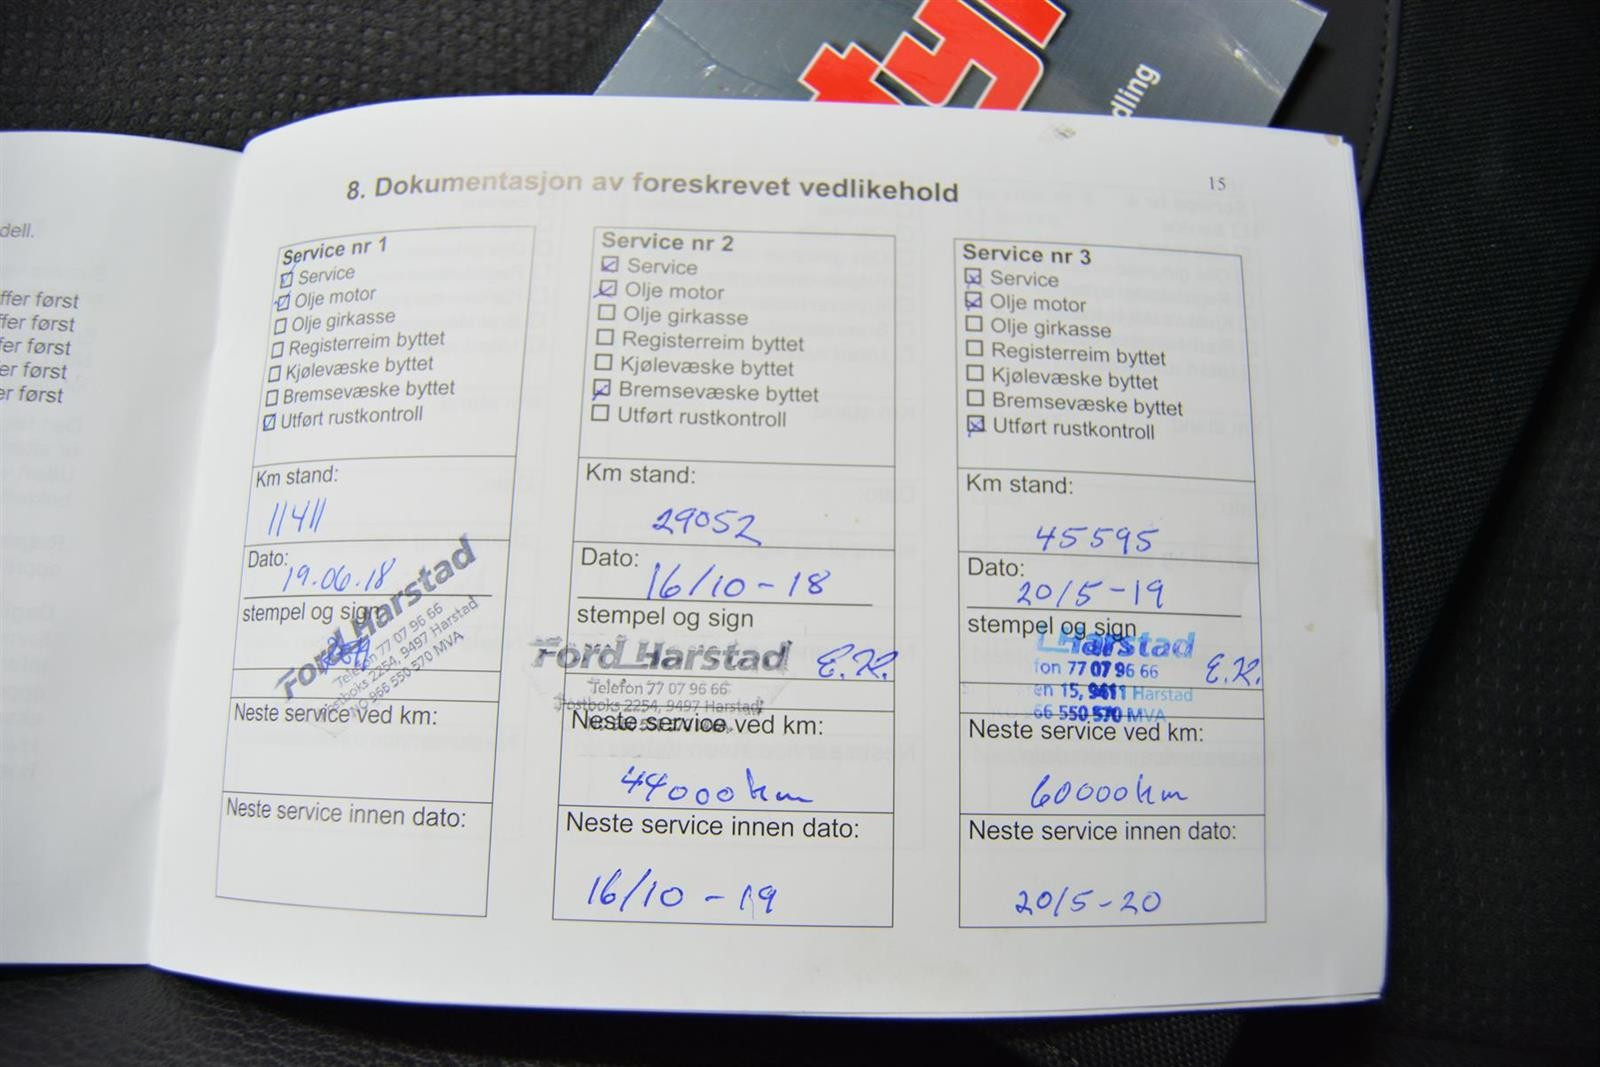 dling
dell.
ffer først
ffer først
fer først
er først
er først
8. Dokumentasjon av foreskrevet vedlikehold
15
Service nr 1
Service
Olje motor
Olje girkasse
Registerreim byttet
Kjølevæske byttet
Bremsevæske byttet
Utført rustkontroll
Km stand:
11411
Dato:
19.06.18
stempel og sign
Ford Harstad
Telefon 77 07 96 66
Postboks 2254, 9497 Harstad
NO 966 550 570 MVA
Neste service ved km:
Neste service innen dato:
Service nr 2
Service
Olje motor
Olje girkasse
Registerreim byttet
Kjølevæske byttet
Bremsevæske byttet
Utført rustkontroll
Km stand:
29052
Dato:
16/10-18
stempel og sign
Ford Harstad E.K.
Telefon 77 07 96 66
Postboks 2254, 9497 Harstad
Neste service ved km:
44000 km
Neste service innen dato:
16/10-19
Service nr 3
Service
Olje motor
Olje girkasse
Registerreim byttet
Kjølevæske byttet
Bremsevæske byttet
Utført rustkontroll
Km stand:
45595
Dato:
20/5-19
stempel og sign
Harstad E.K.
fon 77 07 96 66
en 15, 9411 Harstad
66 550 570 MVA
Neste service ved km:
60000 km
Neste service innen dato:
20/5-20